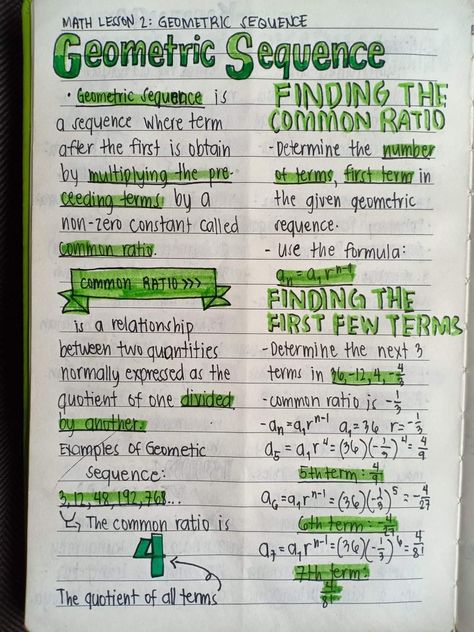 MATH LESSON 2: GEOMETRIC SEQUENCE
GEOMETRIC SEQUENCE
• Geometric sequence is
a sequence where term
after the first is obtain
by multiplying the pre-
ceeding terms by a
non-zero constant called
common ratio.
COMMON RATIO >>>
is a relationship
between two quantities
normally expressed as the
quotient of one divided
by another.
Examples of Geometic
Sequence:
3, 12, 48, 192, 768...
↳ The common ratio is
4
The quotient of all terms
FINDING THE
COMMON RATIO
- Determine the number
of terms, first term in
the given geometric
sequence.
- use the formula:
aₙ = a₁rⁿ⁻¹
FINDING THE
FIRST FEW TERMS
- Determine the next 3
terms in 36, -12, 4, -4/3
- common ratio is -1/3
- aₙ = a₁rⁿ⁻¹ a₁ = 36 r = -1/3
a₅ = a₁r⁴ = (36)(-1/3)⁴ = 4/9
5th term: 4/9
a₆ = a₁rⁿ⁻¹ = (36)(-1/3)⁵ = -4/27
6th term: -4/27
a₇ = a₁rⁿ⁻¹ = (36)(-1/3)⁶ = 4/81
7th term:
4/81